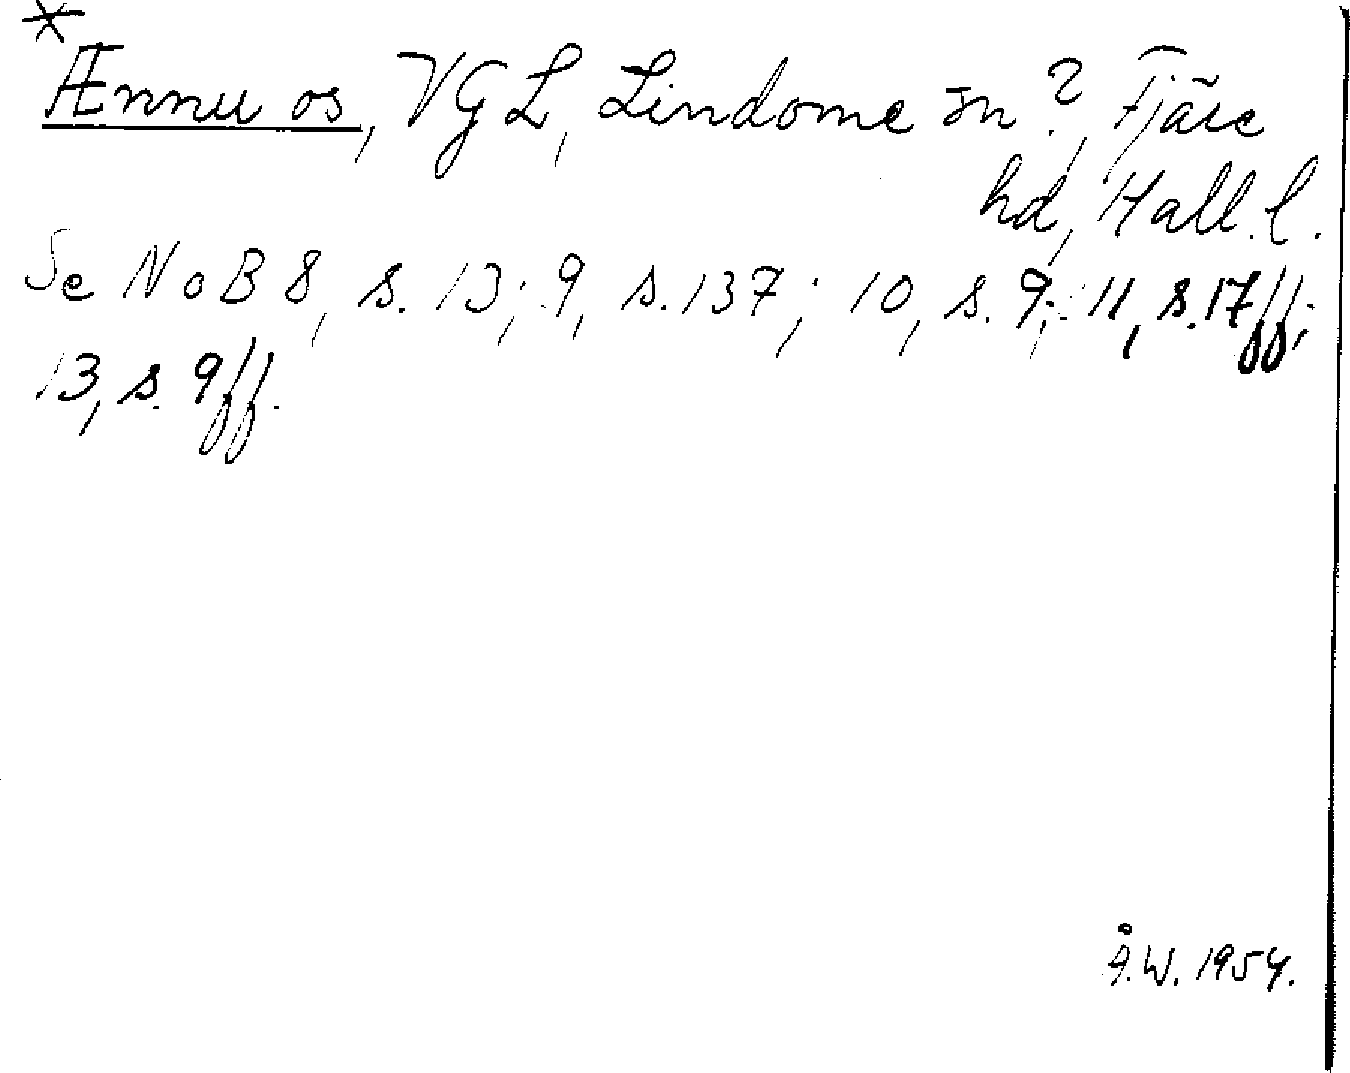 *
Ænnu os, VGL, Lindome sn?, Fjäre
hd, Hall.l.
Se NoB 8, s. 13; 9, s. 137; 10, s. 9; 11, s. 17 ff;
13, s. 9 ff.
Å.W. 1954.